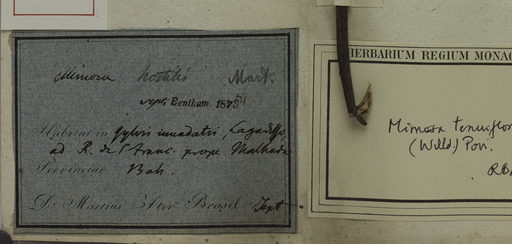 Mimosa hostilis Mart.
sept. Bentham. 1873
Habitat in sylvis inundatis,
ad R. de S. Franc. prope Malhada
Provinciae Bah.
Dr. Martius Iter Brasil. Sept
HERBARIUM REGIUM MONAC
Mimosa tenuiflor
(Willd.) Poir.